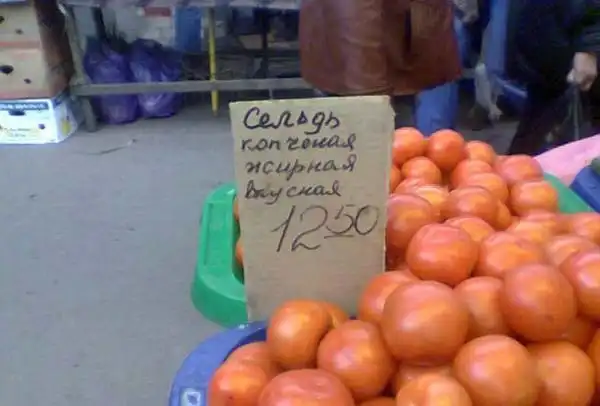 Сельдь
копченая
жирная
вкусная
12 50